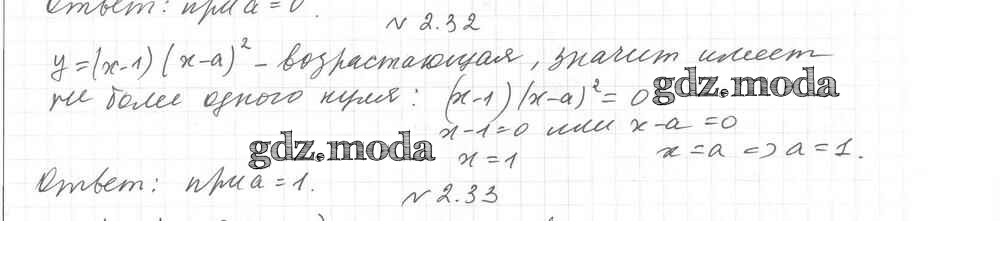 Ответ: при a=0.
№ 2.32
y=(x-1)(x-a)² - возрастающая, значит имеет
не более одного нуля: (x-1)(x-a)²=0
gdz.moda
x-1=0 или x-a=0
gdz.moda
x=1 x=a => a=1.
Ответ: при a=1.
№ 2.33